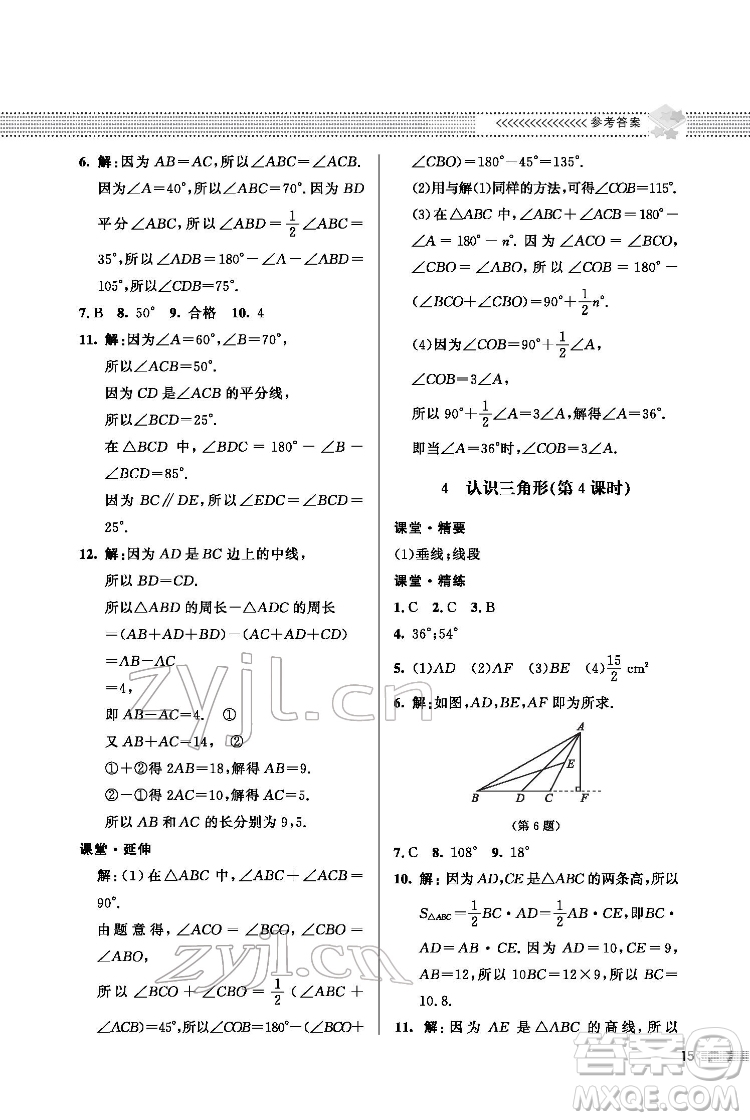 <<<<<<<<<<<<<<<< 参考答案
6. 解:因为 AB=AC,所以∠ABC=∠ACB.
因为∠A=40°,所以∠ABC=70°.因为 BD
平分∠ABC,所以∠ABD=1/2∠ABC=
35°,所以∠ADB=180°-∠A-∠ABD=
105°,所以∠CDB=75°.
7. B 8. 50° 9. 合格 10. 4
11. 解:因为∠A=60°,∠B=70°,
所以∠ACB=50°.
因为 CD 是∠ACB 的平分线,
所以∠BCD=25°.
在△BCD 中,∠BDC=180°-∠B-
∠BCD=85°.
因为 BC∥DE,所以∠EDC=∠BCD=
25°.
12. 解:因为 AD 是 BC 边上的中线,
所以 BD=CD.
所以△ABD 的周长-△ADC 的周长
=(AB+AD+BD)-(AC+AD+CD)
=AB-AC
=4,
即 AB-AC=4. ①
又 AB+AC=14, ②
①+②得 2AB=18,解得 AB=9.
②-①得 2AC=10,解得 AC=5.
所以 AB 和 AC 的长分别为 9,5.
课堂·延伸
解:(1)在△ABC 中,∠ABC+∠ACB=
90°.
由题意得,∠ACO=∠BCO,∠CBO=
∠ABO,
所以∠BCO+∠CBO=1/2(∠ABC+
∠ACB)=45°,所以∠COB=180°-(∠BCO+
∠CBO)=180°-45°=135°.
(2)用与解(1)同样的方法,可得∠COB=115°.
(3)在△ABC 中,∠ABC+∠ACB=180°-
∠A=180°-n°.因为∠ACO=∠BCO,
∠CBO=∠ABO,所以∠COB=180°-
(∠BCO+∠CBO)=90°+1/2n°.
(4)因为∠COB=90°+1/2∠A,
∠COB=3∠A,
所以 90°+1/2∠A=3∠A,解得∠A=36°.
即当∠A=36°时,∠COB=3∠A.
4 认识三角形(第 4 课时)
课堂·精要
(1)垂线;线段
课堂·精练
1. C 2. C 3. B
4. 36°;54°
5. (1)AD (2)AF (3)BE (4)15/2 cm²
6. 解:如图,AD,BE,AF 即为所求.
A
E
B D C F
(第 6 题)
7. C 8. 108° 9. 18°
10. 解:因为AD,CE是△ABC的两条高,所以
S△ABC=1/2BC·AD=1/2AB·CE,即BC·
AD=AB·CE.因为 AD=10,CE=9,
AB=12,所以 10BC=12×9,所以 BC=
10.8.
11. 解:因为 AE 是△ABC 的高线,所以
zyjl.cn
zyjl.cn
答案卷
15